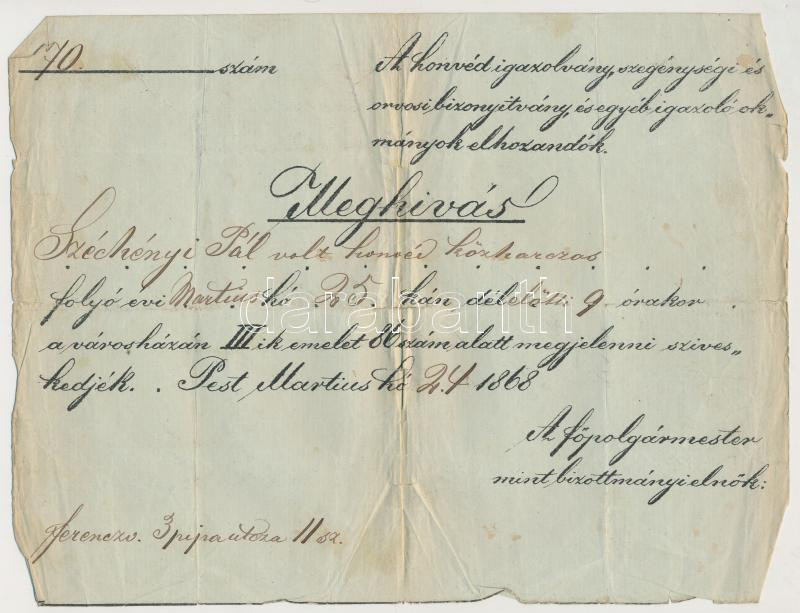 170. szám
A honvéd igazolvány, szegénységi és
orvosi bizonyitvány, és egyéb igazoló ok„
mányok elhozandók.
Meghivás
Széchényi Pál volt honvéd közharczos
folyó évi Martius hó 25. kán délelőtti 9 órakor
a városházán III ik emelet 86 szám alatt megjelenni szives„
kedjék. . Pest Martius hó 24 1868
A főpolgármester
mint bizottmányi elnök:
Ferenczv. 3 pipa utcza 11 sz.
darabanth